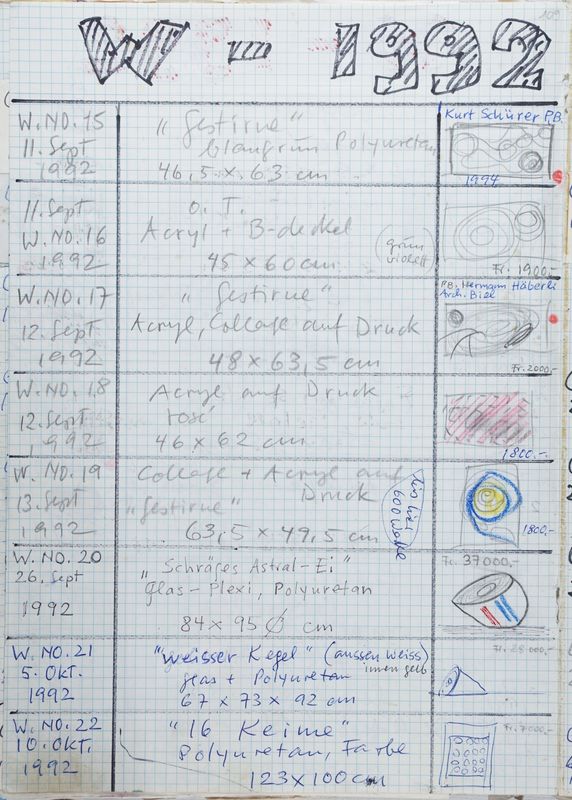 109
W - 1992
W. NO. 15
11. Sept
1992
"Gestirne"
blaugrün Polyuretan
46,5 x 63 cm
Kurt Schürer P.B.
1994
11. Sept
W. NO. 16
1992
O. T.
Acryl + B-deckel
45 x 60 cm
(grün violett)
Fr. 1900.-
W. NO. 17
12. Sept
1992
"Gestirne"
Acryl, Collage auf Druck
48 x 63,5 cm
P.B. Hermann Häberli
Arch. Biel
Fr. 2000.-
W. NO. 18
12. Sept
1992
Acryl auf Druck
rosé
46 x 62 cm
1800.-
W. NO. 19
13. Sept
1992
Collage + Acryl auf
Druck
"Gestirne"
63,5 x 49,5 cm
600
1800.-
W. NO. 20
26. Sept
1992
"Schräges Astral-Ei"
Glas-Plexi, Polyuretan
84 x 95 Ø cm
Fr. 37000.-
W. NO. 21
5. OKT.
1992
"weisser Kegel" (aussen weiss)
innen gelb
glas + Polyuretan
67 x 73 x 92 cm
Fr. 28000.-
W. NO. 22
10. OKT.
1992
"16 Keime"
Polyuretan, Farbe
123x100cm
Fr. 7000.-